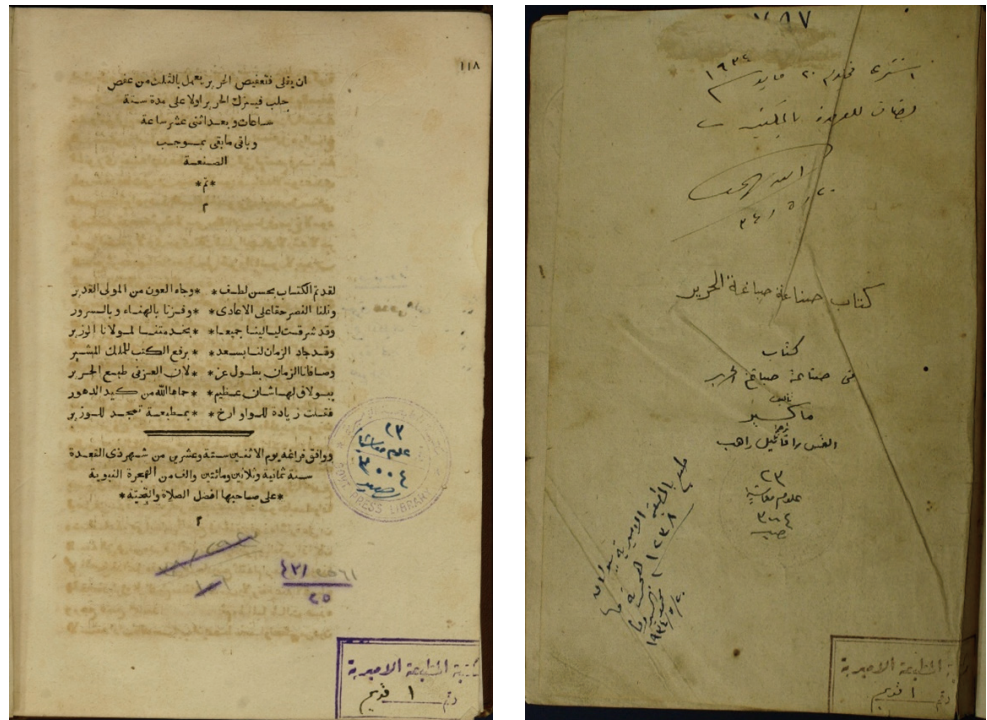 ١١٨
ان يقلى فتعفيص الحرير يعمل بالثلث من عفص
حلب فيترك الحرير اولا على مدة ستة
ساعات وبعد اثنى عشر ساعة
وباقى مابقى بموجب
الصنعة
*تم*
م
لقدتم الكتاب بحسن لطف * *وجاه العون من المولى القدير
ونلنا النصر حقا على الاعادى * *وفزنا بالهناء وبالسرور
وقد شرقت ليالينا جميعا * *بخدمتنا لمولانا الوزير
وقد جاد الزمان لنا بسعد * *برفع الكتب للملك المشير
وصافانا الزمان بطول عز * *لان العز فى طبع الحرير
ببولاق لها شان عظيم * *حماها الله من كيد الدهور
فقلت زيادة للواو ارخ * *بمطبعة تمجد للوزير
ووافق فراغه يوم الاثنين ستة وعشرين من شهر ذى القعدة
سنة ثمانية وثلاثين ومائتين والف من الهجرة النبوية
*على صاحبها افضل الصلاة والتحية*
م
٢٣
٣٠٠٤
GOV. PRESS LIBRARY
٤٣١
٢٥
مكتبة المطبعة الاميرية
رقم ١ قديم
٧٨٧
٢٠ مايو ١٩٣٤
٢٠ / ٥ / ٣٤
كتاب صناعة صباغة الحرير
كتاب
فى صناعة صباغة الحرير
تأليف
ماكير
ترجمة
القس رافائيل راهب
٢٣
علوم معاشية
٣٠٠٤
طبع المطبعة الاميرية ببولاق
١٢٣٨
المطبعة الاميرية
رقم ١ قديم